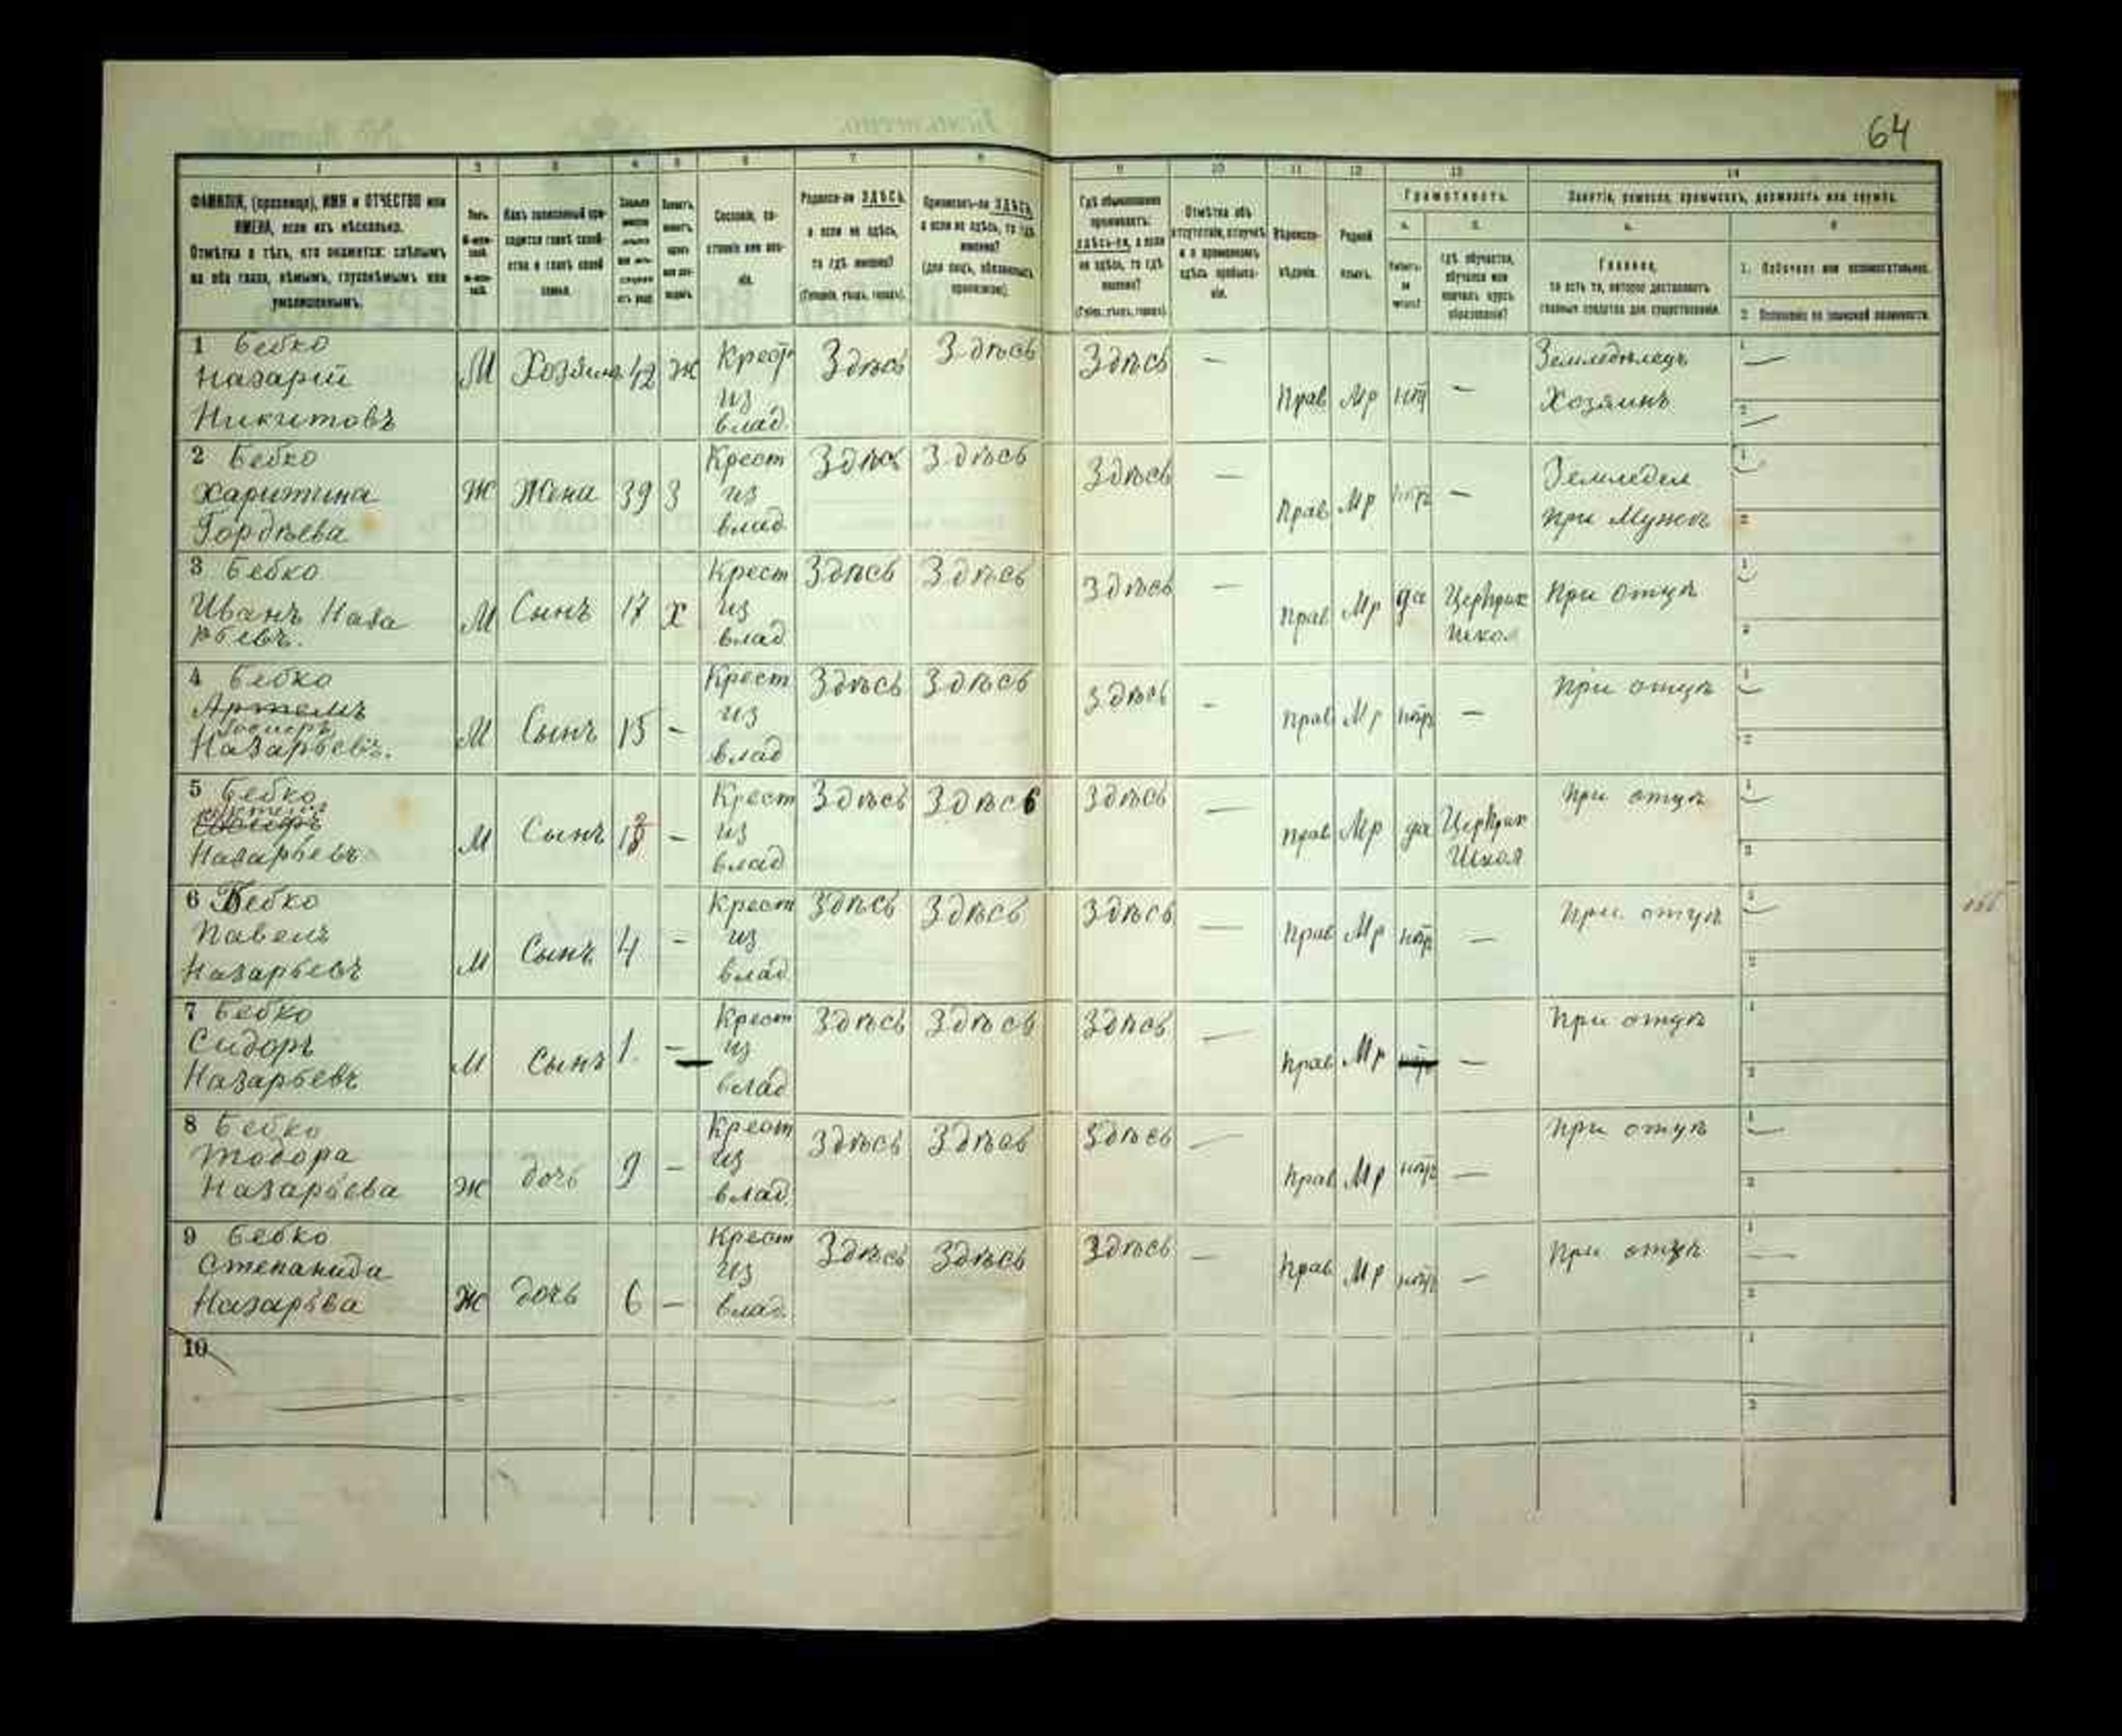 64
1 2 3 4 5 6 7 8 9 10 11 12 13 14
ФАМИЛІЯ, (прозвище), ИМЯ и ОТЧЕСТВО или
ИМЕНА, если ихъ нѣсколько.
Отмѣтка о тѣхъ, кто окажется: слѣпымъ
на оба глаза, нѣмымъ, глухонѣмымъ или
умалишеннымъ.
Полъ.
Какъ записанный при-
ходится главѣ хозяй-
ства и главѣ своей
семьи.
Сословіе, со-
стояніе или зва-
ніе.
Родился-ли ЗДѢСЬ,
а если не здѣсь,
то гдѣ именно?
(Губернія, уѣздъ, городъ).
Приписанъ-ли ЗДѢСЬ,
а если не здѣсь, то гдѣ
именно?
(для лицъ, обязанныхъ
припискою).
Гдѣ обыкновенно
проживаетъ:
здѣсь-ли, а если
не здѣсь, то гдѣ
именно?
(Губ., уѣздъ, городъ).
Отмѣтка объ
отсутствіи, отлучкѣ
и о временномъ
здѣсь пребыва-
ніи.
Вѣроиспо-
вѣданіе.
Родной
языкъ.
Грамотность.
а. б.
Умѣетъ-
ли
читать?
гдѣ обучается,
обучался или
кончилъ курсъ
образованія?
Занятіе, ремесло, промыселъ, должность или служба.
а. б
Главное,
то есть то, которое доставляетъ
главныя средства для существованія.
1. Побочное или вспомогательное.
2. Положеніе по воинской повинности.
1 Бебко
Назарій
Никитовъ
М Хозяинъ 42 Ж Крест из влад. Здѣсь Здѣсь Здѣсь — Прав Мр нѣт —
Земледѣлецъ
Хозяинъ
1 —
2 —
2 Бебко
Харитина
Гордѣева
Ж Жена 39 З Крест из влад Здѣсь Здѣсь Здѣсь — Прав Мр нѣтъ —
Земледел
при Мужѣ
1
2
3 Бебко
Иванъ Наза
рьевъ.
М Сынъ 17 х Крест из влад Здѣсь Здѣсь Здѣсь — прав Мр да ЦерПрих Школ
При Отцѣ
1
2
4 Бебко
Артемъ
Іосифъ
Назарьевъ.
М Сынъ 15 - Крест из влад Здѣсь Здѣсь Здѣсь - прав Мр нѣтъ —
при отцѣ
1
2
5 Бебко
Артемъ
Іосифъ
Назарьевъ
М Сынъ - Крест из влад Здѣсь Здѣсь Здѣсь — прав Мр да ЦерПрих Школ
при отцѣ
1
2
6 Бебко
Павелъ
Назарьевъ
М Сынъ 4 - Крест из влад Здѣсь Здѣсь Здѣсь — прав Мр нѣтъ —
при отцѣ
1
2
7 Бебко
Сидоръ
Назарьевъ
М Сынъ 1. - Крест из влад Здѣсь Здѣсь Здѣсь — прав Мр нѣтъ —
при отцѣ
1
2
8 Бебко
Тодора
Назарьева
Ж дочь 9 - Крест из влад. Здѣсь Здѣсь Здѣсь — прав Мр нѣтъ —
при отцѣ
1
2
9 Бебко
Степанида
Назарьва
Ж дочь 6 - Крест из влад. Здѣсь Здѣсь Здѣсь — прав Мр нѣтъ —
при отцѣ
1
2
10
1
2